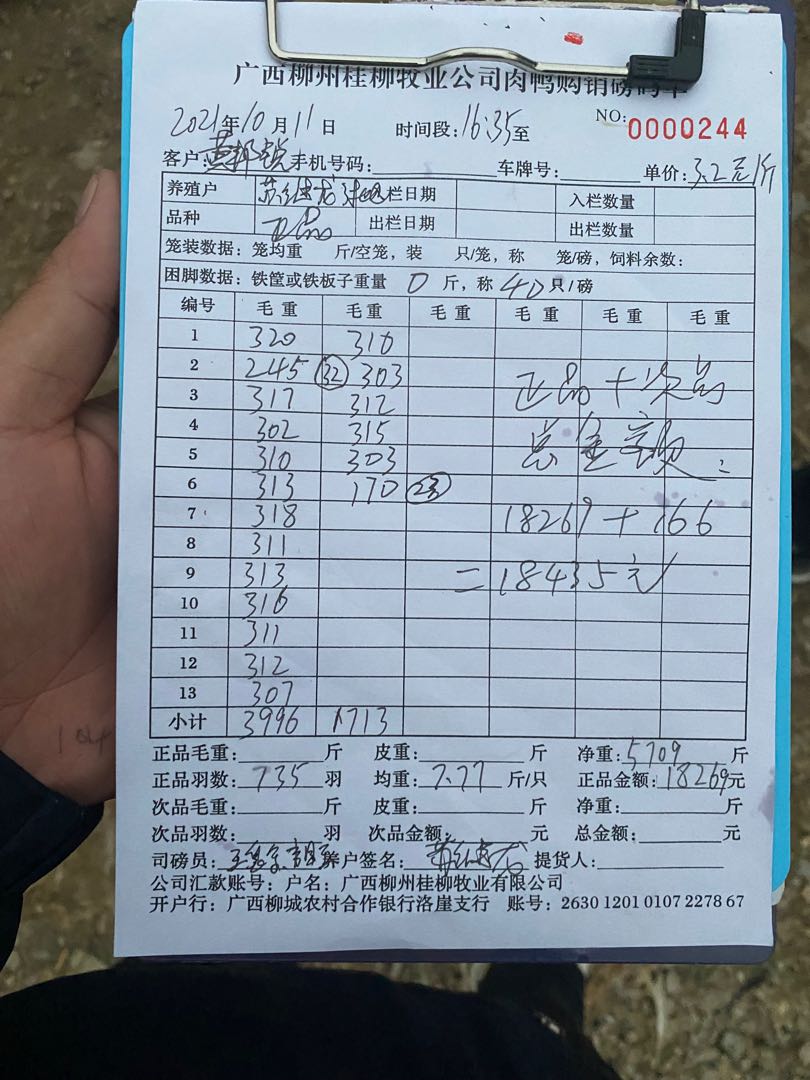 广西柳州桂柳牧业公司肉鸭购销磅码单
2021年10月11日 时间段:16:35至 NO: 0000244
客户: 手机号码: 车牌号: 单价:3.2元/斤
养殖户 栏日期 入栏数量
品种 正品 出栏日期 出栏数量
笼装数据:笼均重 斤/空笼,装 只/笼,称 笼/磅,饲料余数:
困脚数据:铁筐或铁板子重量 0 斤,称 40 只/磅
编号 毛重 毛重 毛重 毛重 毛重 毛重
1 320 310
2 245 32 303 正品+次品
3 317 312
4 302 315 总金额:
5 310 303
6 313 170 23
7 318 18269+166
8 311
9 313 =18435元
10 316
11 311
12 312
13 307
小计 3996 1713
正品毛重: 斤 皮重: 斤 净重:5709斤
正品羽数:735羽 均重:7.77斤/只 正品金额:18269元
次品毛重: 斤 皮重: 斤 净重: 斤
次品羽数: 羽 次品金额: 元 总金额: 元
司磅员: 养户签名: 提货人:
公司汇款账号:户名:广西柳州桂柳牧业有限公司
开户行:广西柳城农村合作银行洛崖支行 账号:2630 1201 0107 2278 67